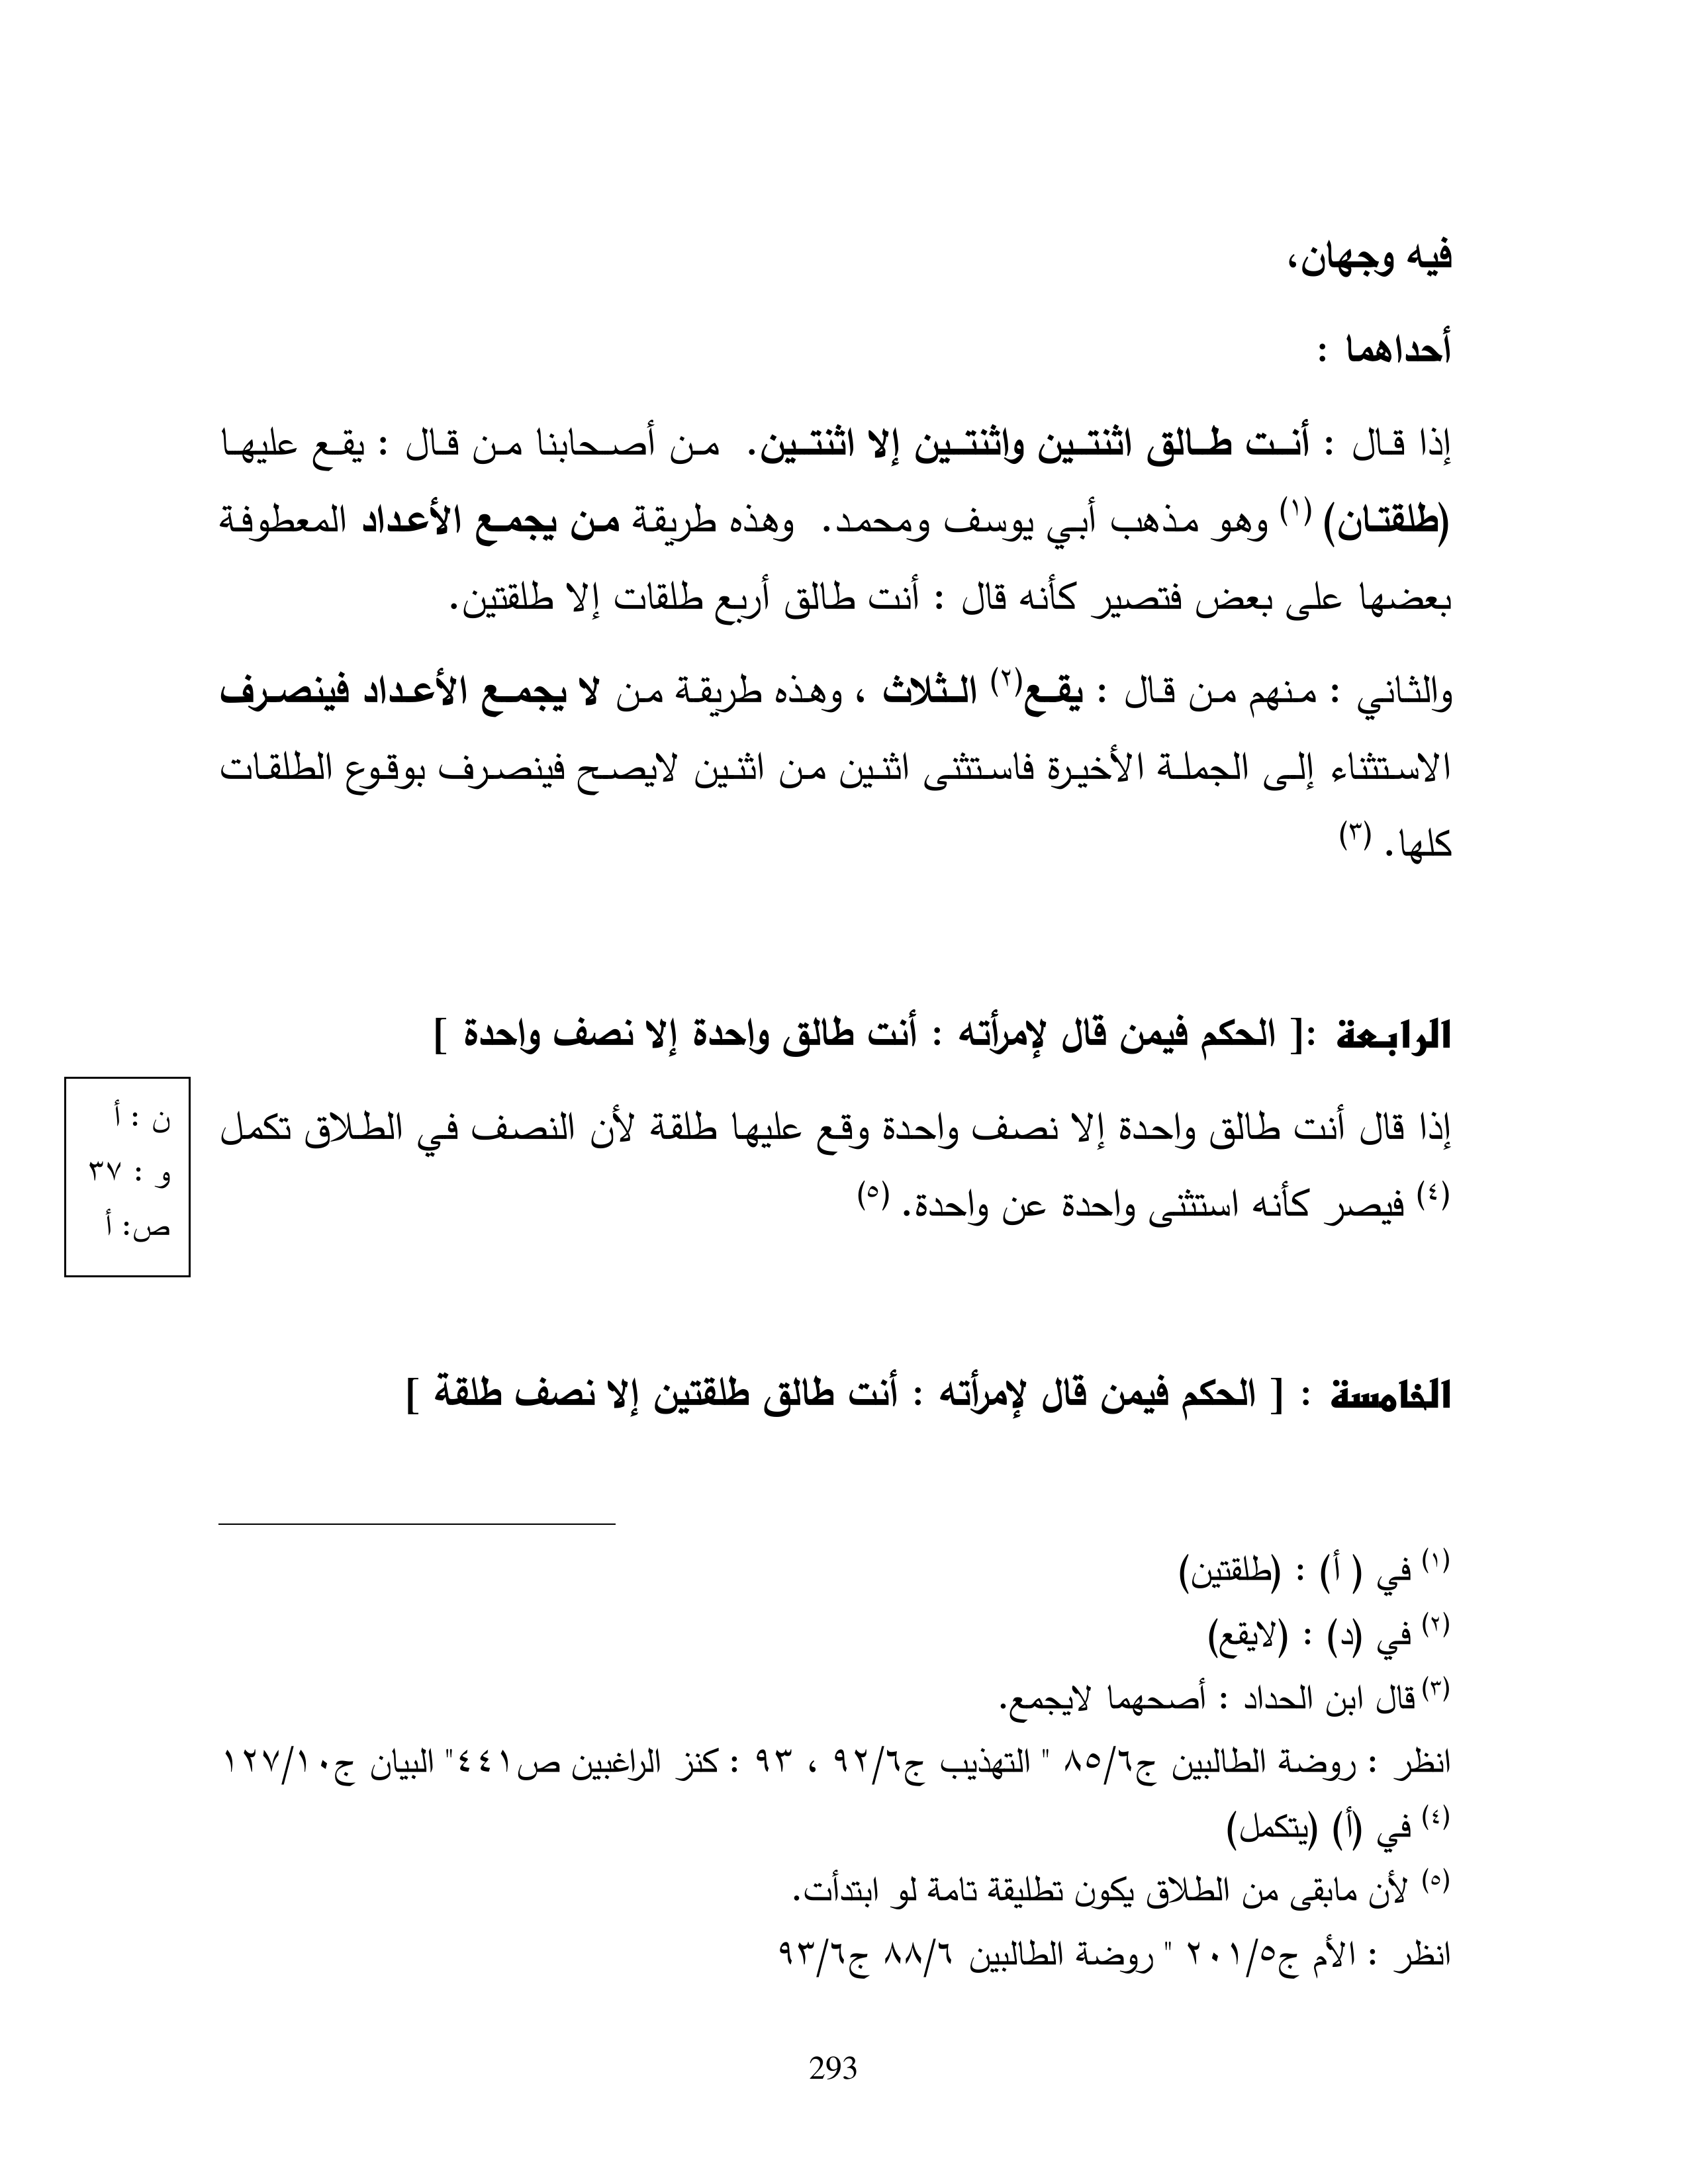 فيه وجهان،
أحداهما :
إذا قال : أنت طالق اثنتين واثنتين إلا اثنتين. من أصحابنا من قال : يقع عليها
(طلقتان) (١) وهو مذهب أبي يوسف ومحمد. وهذه طريقة من يجمع الأعداد المعطوفة
بعضها على بعض فتصير كأنه قال : أنت طالق أربع طلقات إلا طلقتين.
والثاني : منهم من قال : يقع(٢) الثلاث ، وهذه طريقة من لا يجمع الأعداد فينصرف
الاستثناء إلى الجملة الأخيرة فاستثنى اثنين من اثنين لايصح فينصرف بوقوع الطلقات
كلها. (٣)
الرابعة :[ الحكم فيمن قال لإمرأته : أنت طالق واحدة إلا نصف واحدة ]
إذا قال أنت طالق واحدة إلا نصف واحدة وقع عليها طلقة لأن النصف في الطلاق تكمل
(٤) فيصر كأنه استثنى واحدة عن واحدة. (٥)
ن : أ
و : ٣٧
ص: أ
الخامسة : [ الحكم فيمن قال لإمرأته : أنت طالق طلقتين إلا نصف طلقة ]
(١) في ( أ) : (طلقتين)
(٢) في (د) : (لايقع)
(٣) قال ابن الحداد : أصحهما لايجمع.
انظر : روضة الطالبين ج٨٥/٦ " التهذيب ج٩٢/٦ ، ٩٣ : كنز الراغبين ص٤٤١" البيان ج١٢٧/١٠
(٤) في (أ) (يتكمل)
(٥) لأن مابقى من الطلاق يكون تطليقة تامة لو ابتدأت.
انظر : الأم ج٢٠١/٥ " روضة الطالبين ٨٨/٦ ج٩٣/٦
293